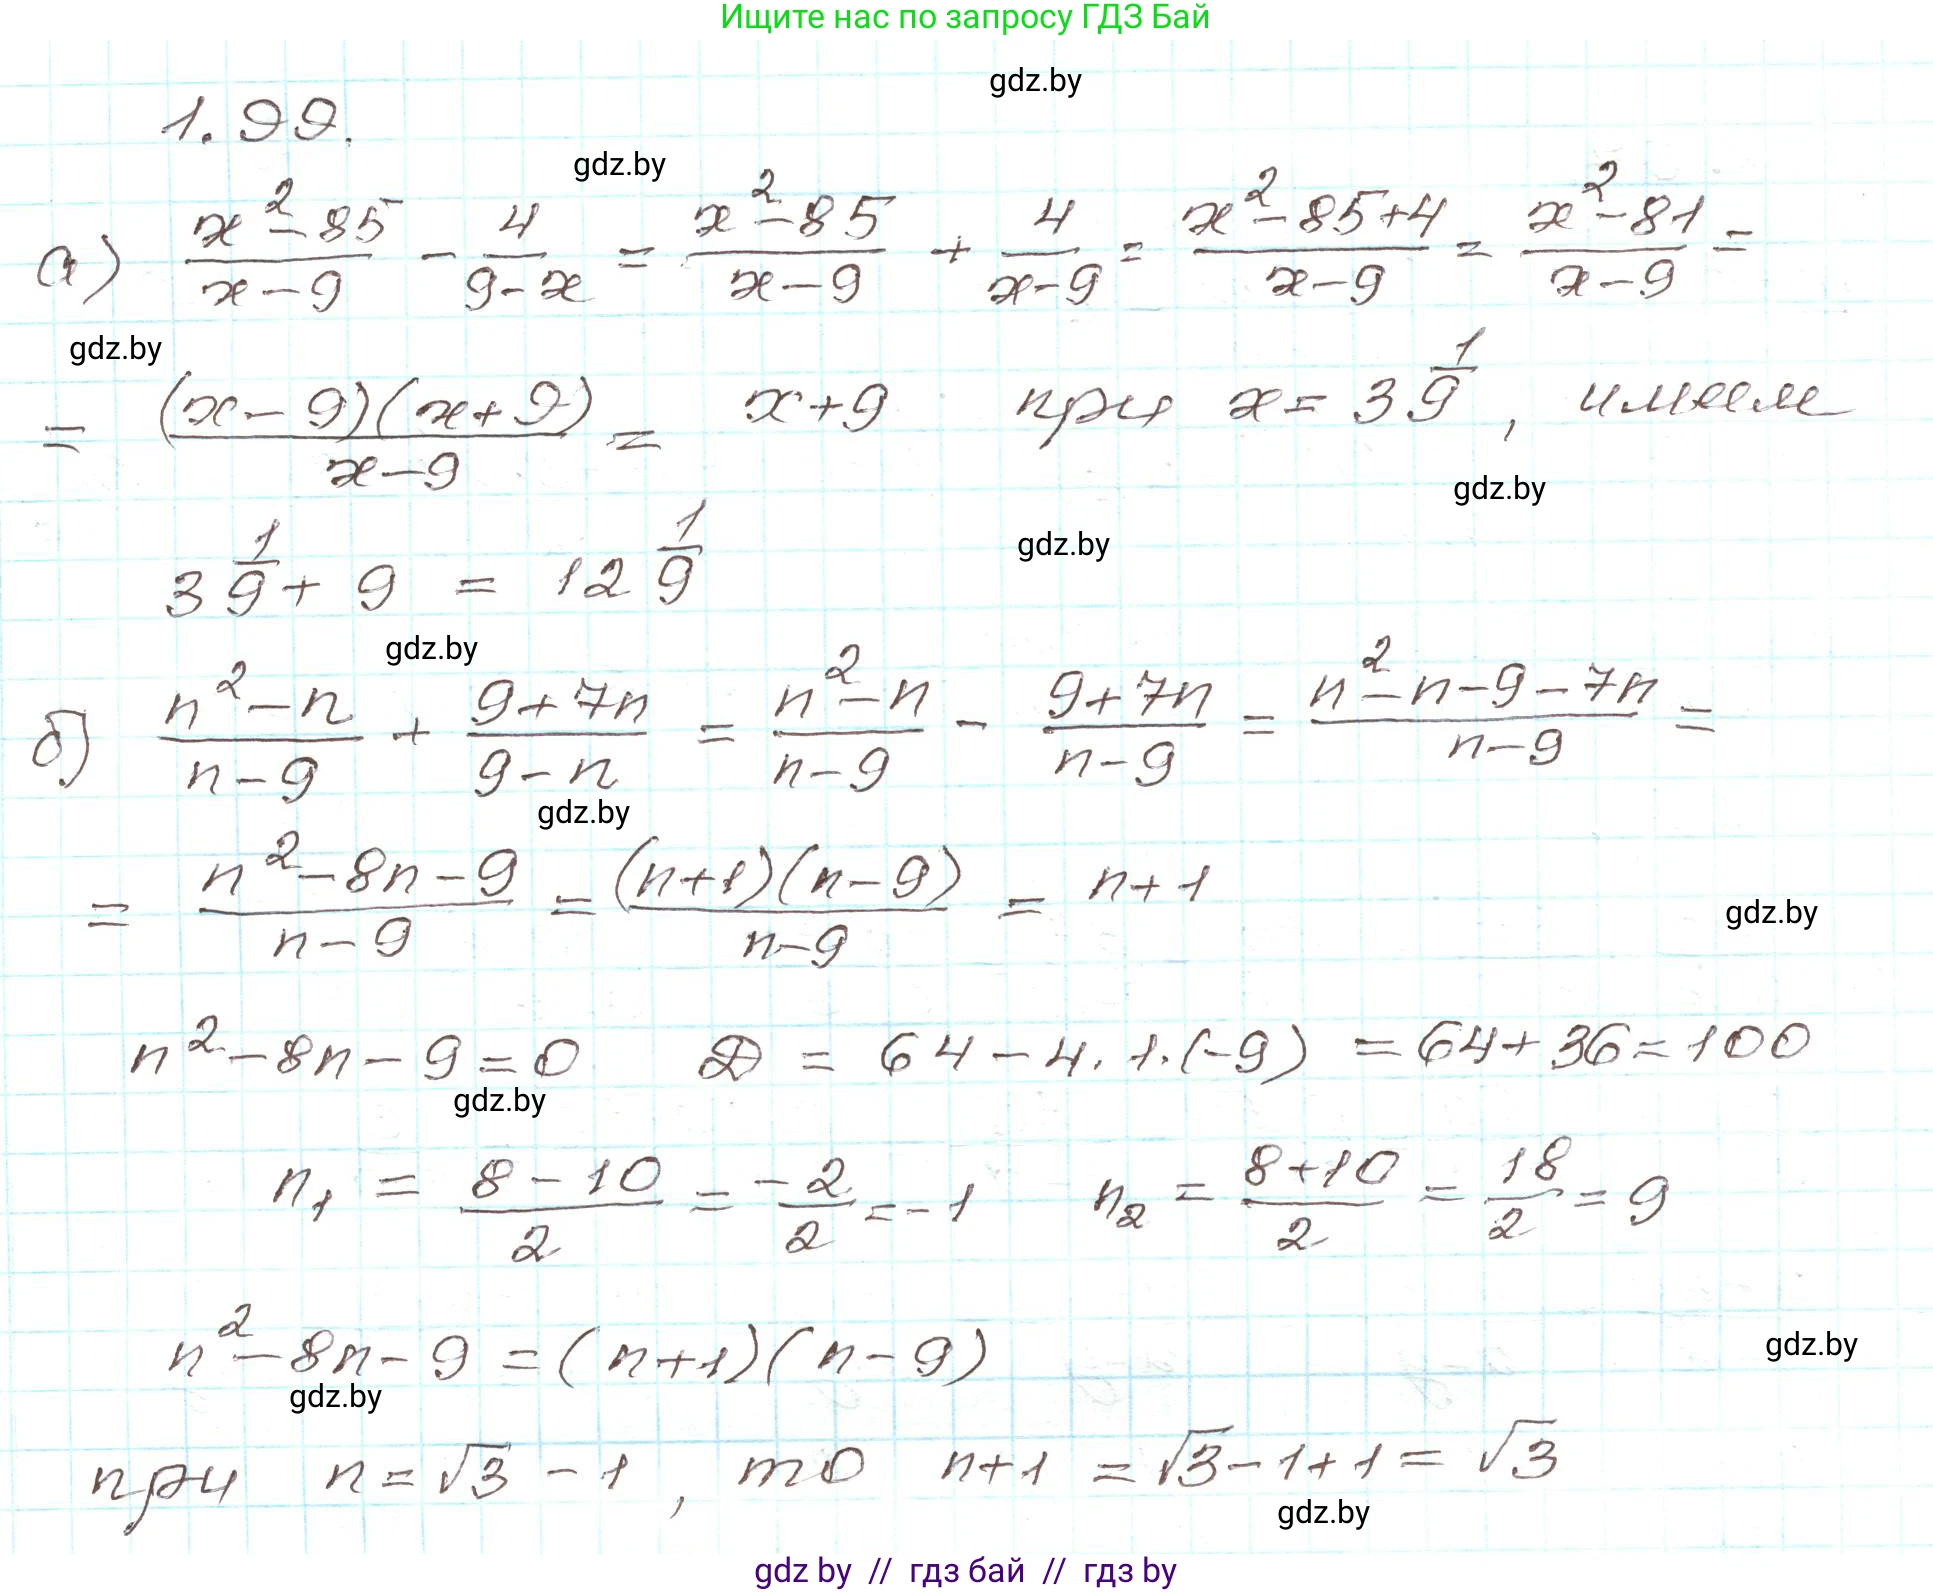 Ищите нас по запросу ГДЗ Бай
gdz.by
1.99.
gdz.by
а) \frac{x^2-85}{x-9} - \frac{4}{9-x} = \frac{x^2-85}{x-9} + \frac{4}{x-9} = \frac{x^2-85+4}{x-9} = \frac{x^2-81}{x-9} =
gdz.by
= \frac{(x-9)(x+9)}{x-9} = x+9 при x = 3\frac{1}{9}, имеем
gdz.by
gdz.by
3\frac{1}{9} + 9 = 12\frac{1}{9}
gdz.by
б) \frac{n^2-n}{n-9} + \frac{9+7n}{9-n} = \frac{n^2-n}{n-9} - \frac{9+7n}{n-9} = \frac{n^2-n-9-7n}{n-9} =
gdz.by
= \frac{n^2-8n-9}{n-9} = \frac{(n+1)(n-9)}{n-9} = n+1
gdz.by
n^2-8n-9=0 D = 64-4·1·(-9) = 64+36=100
gdz.by
n_1 = \frac{8-10}{2} = \frac{-2}{2} = -1 n_2 = \frac{8+10}{2} = \frac{18}{2} = 9
n^2-8n-9 = (n+1)(n-9)
gdz.by
gdz.by
при n=√3 -1, то n+1 = √3-1+1 = √3
gdz.by
gdz by // гдз бай // гдз by